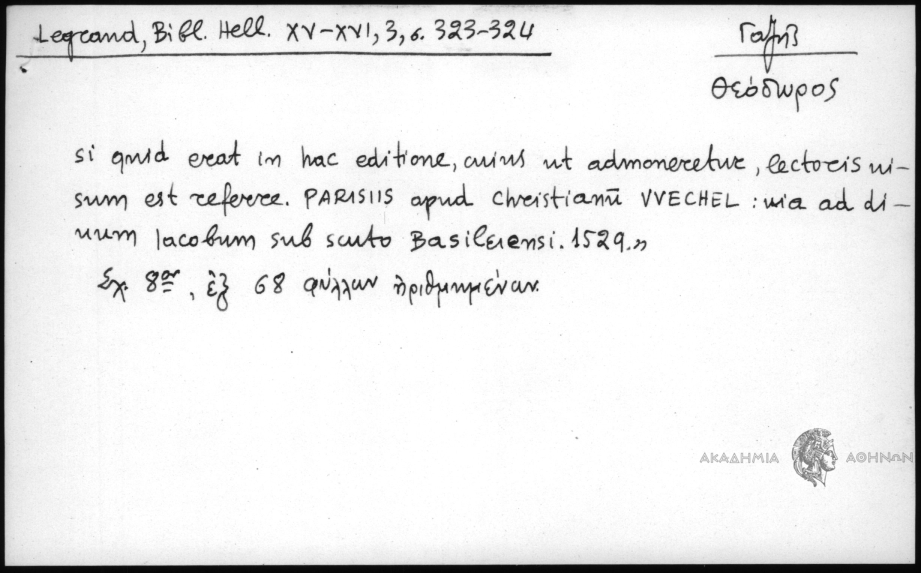 Legrand, Bibl. Hell. XV-XVI, 3, σ. 323-324
Γαζῆς
Θεόδωρος
si quid erat in hac editione, cuius ut admoneretur, lectoris ui-
sum est referre. PARISIIS apud Christianū VVECHEL : uia ad di-
uum Iacobum sub scuto Basileiensi. 1529.»
Σχ. 8ον, ἐξ 68 φύλλων ἠριθμημένων.
ΑΚΑΔΗΜΙΑ ΑΘΗΝΩΝ